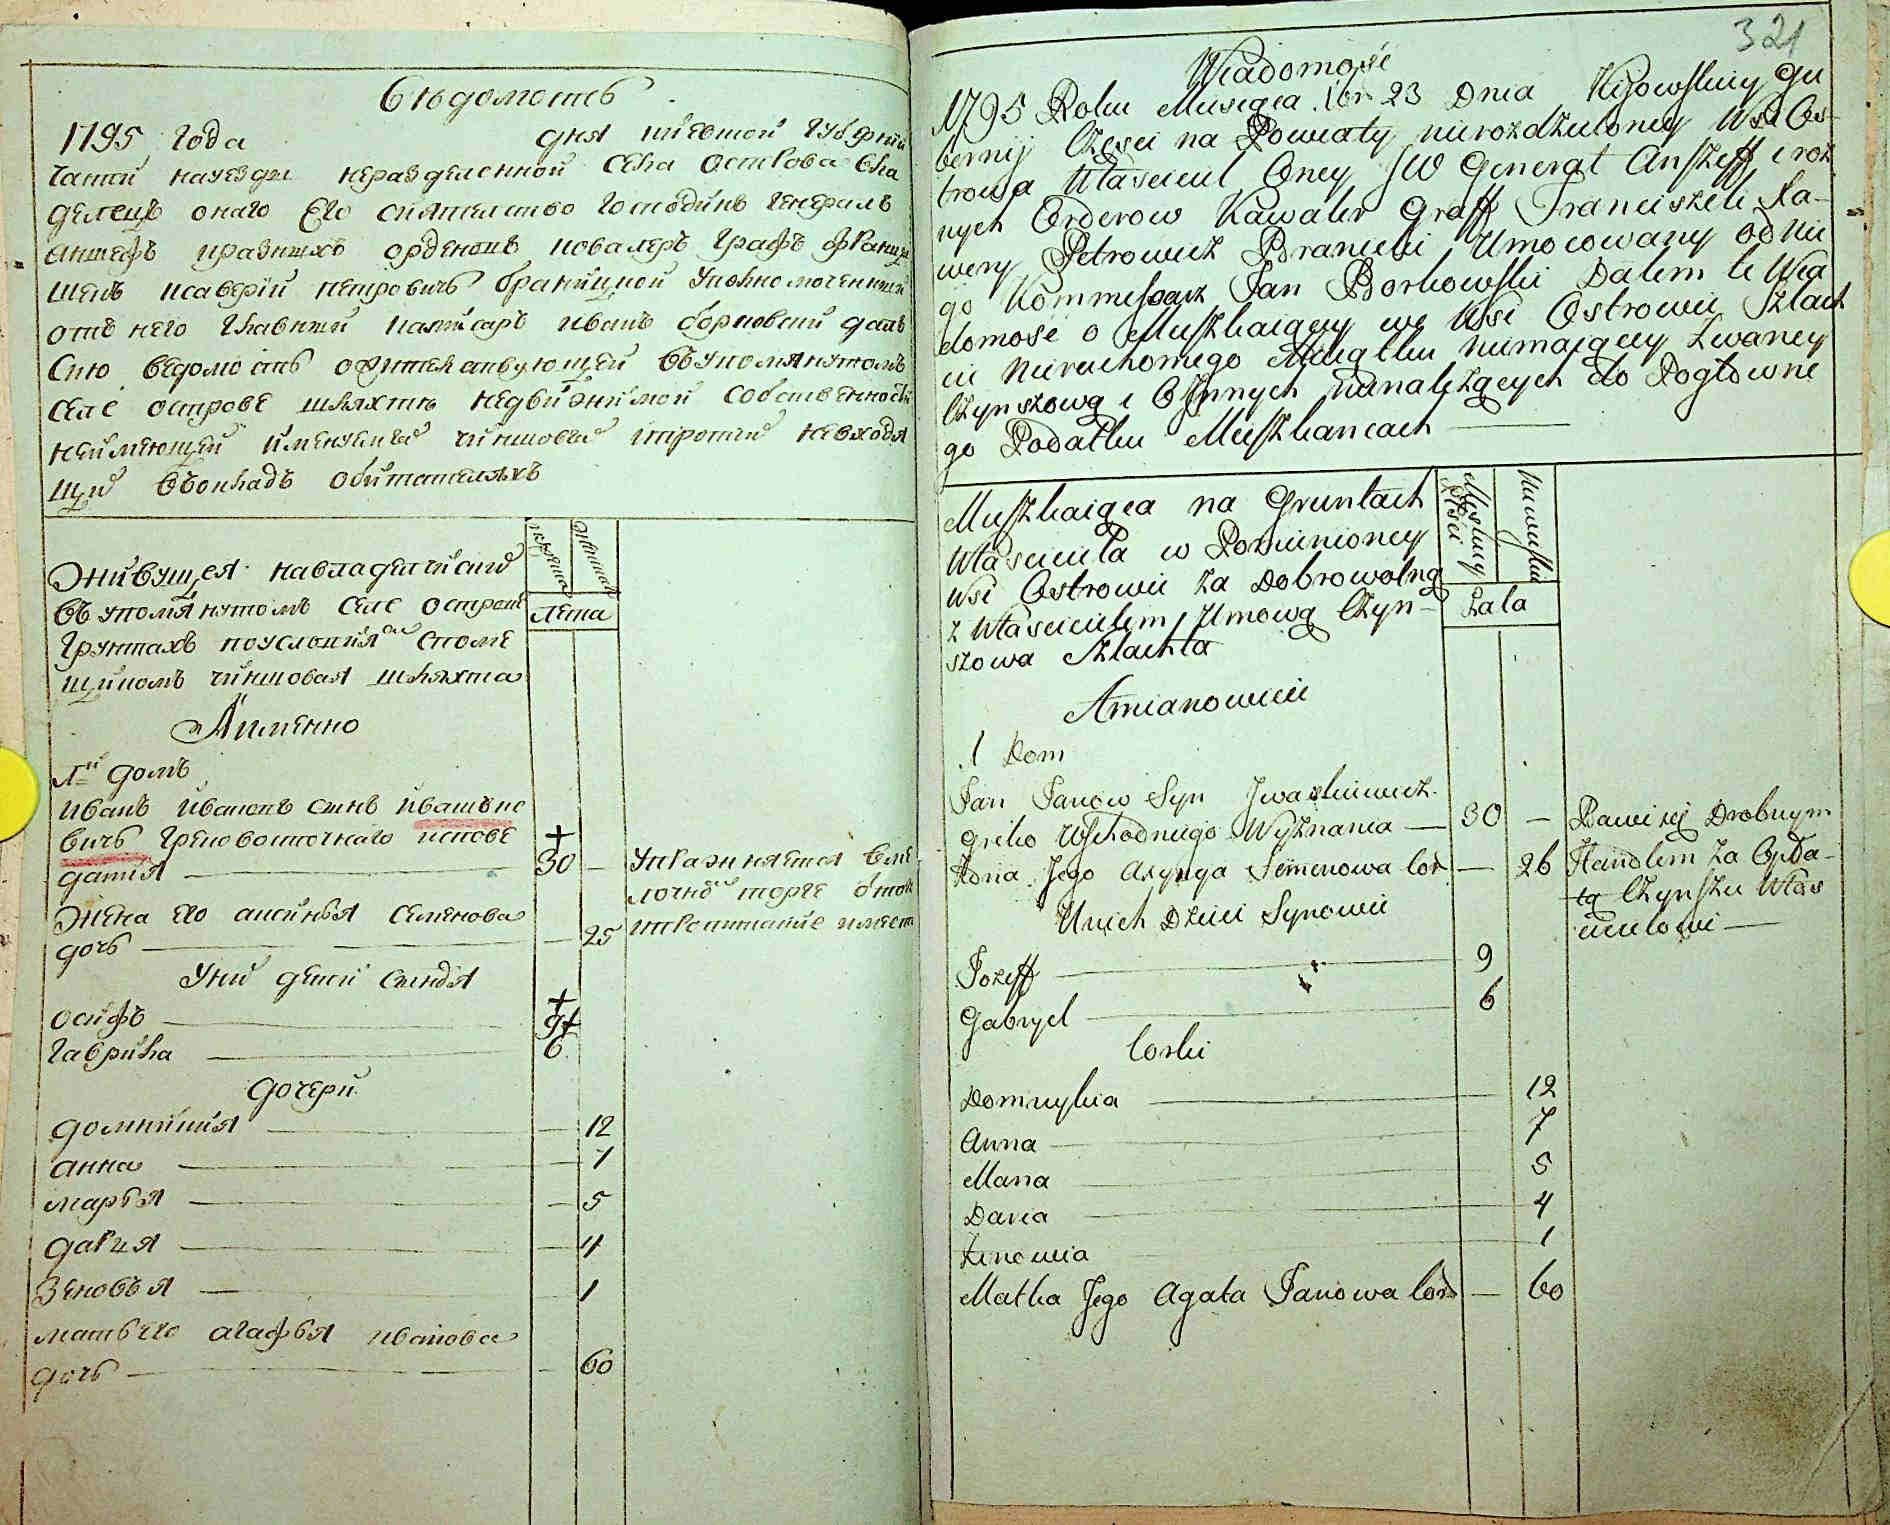 Вѣдомость
1795 Года дня Киевской Губерніи
Части науезди неразделенной Села Острова Вла
делецъ онаго Его Сиятелство Господинъ Генералъ
Аншефъ и разныхъ орденовъ Ковалеръ Графъ Франци
шекъ Ксаверїй Петровичъ Браницкой Уполномоченный
отъ него Главный Комисаръ Иванъ Борковский далъ
Сию Ведомость о жителствующей въ упомянутомъ
Селе Острове шляхты недвижимой Собственности
неимеющей именуемая чиншовая и протчих невходя
щих въ окладъ обитателяхъ
мужеска
женска
Живущея на владелческих
въ упомянутомъ Селе Острове
Грунтахъ по условия Споме
щиком чиншовая шляхта
Лета
А имянно
1й домъ
Иванъ Ивановъ сынъ Ивашке
вичъ Грековосточнаго испове
дания — 30 —
Упражняется в ме
лочном торге
пропитание имеет
Жена его аксинья Семенова
дочь — 25
У них дети сыновя
осифъ — 9
гаврила — 6
дочери
домникия — 12
анна — 7
марья — 5
дария — 4
Зеновъя — 1
мать его агафья иванова
дочь — 60
321
Wiadomość
1795 Roku Miesiąca 10br 23 Dnia Kijowskiey Gu
bernij Części na Powiaty nierozdzieloney Wsi Os-
trowa Właściciel Oney JW Generał Anszeff i roż
nych Orderow Kawaler Graff Franciszek Xa-
wery Petrowicz Branicki Umocowany od nie
go Kommissarz Jan Borkowski Dałem tę Wia
domość o Mieszkaiącey we Wsi Ostrowie Szlach
cie Nieruchomego Maiątku niemaiącey Zwaney
Czynszową i Innych nienależących do Pogłowne
go Podatku Mieszkancach
Mieszkaiąca na Gruntach
Właściciela w Pomienioney
Wsi Ostrowie za Dobrowolną
z Właścicielem Umową Czyn-
szowa Szlachta
Męskiey Płci
Niewieskiey
Lata
A mianowicie
1 Dom
Jan Janow Syn Jwaszkiewicz
Greko Wschodniego Wyznania — 30 —
Żona Jego Axynya Semenowa Cor — 26
Bawi się Drobnym
Handlem za Opła-
tą Czynszu Właś
cicielowi —
U nich Dzieci Synowie
Jozeff — 9
Gabryel — 6
Corki
Domnykia — 12
Anna — 7
Maria — 5
Daria — 4
Zinowia — 1
Matka Jego Agata Janowa Cor — 60